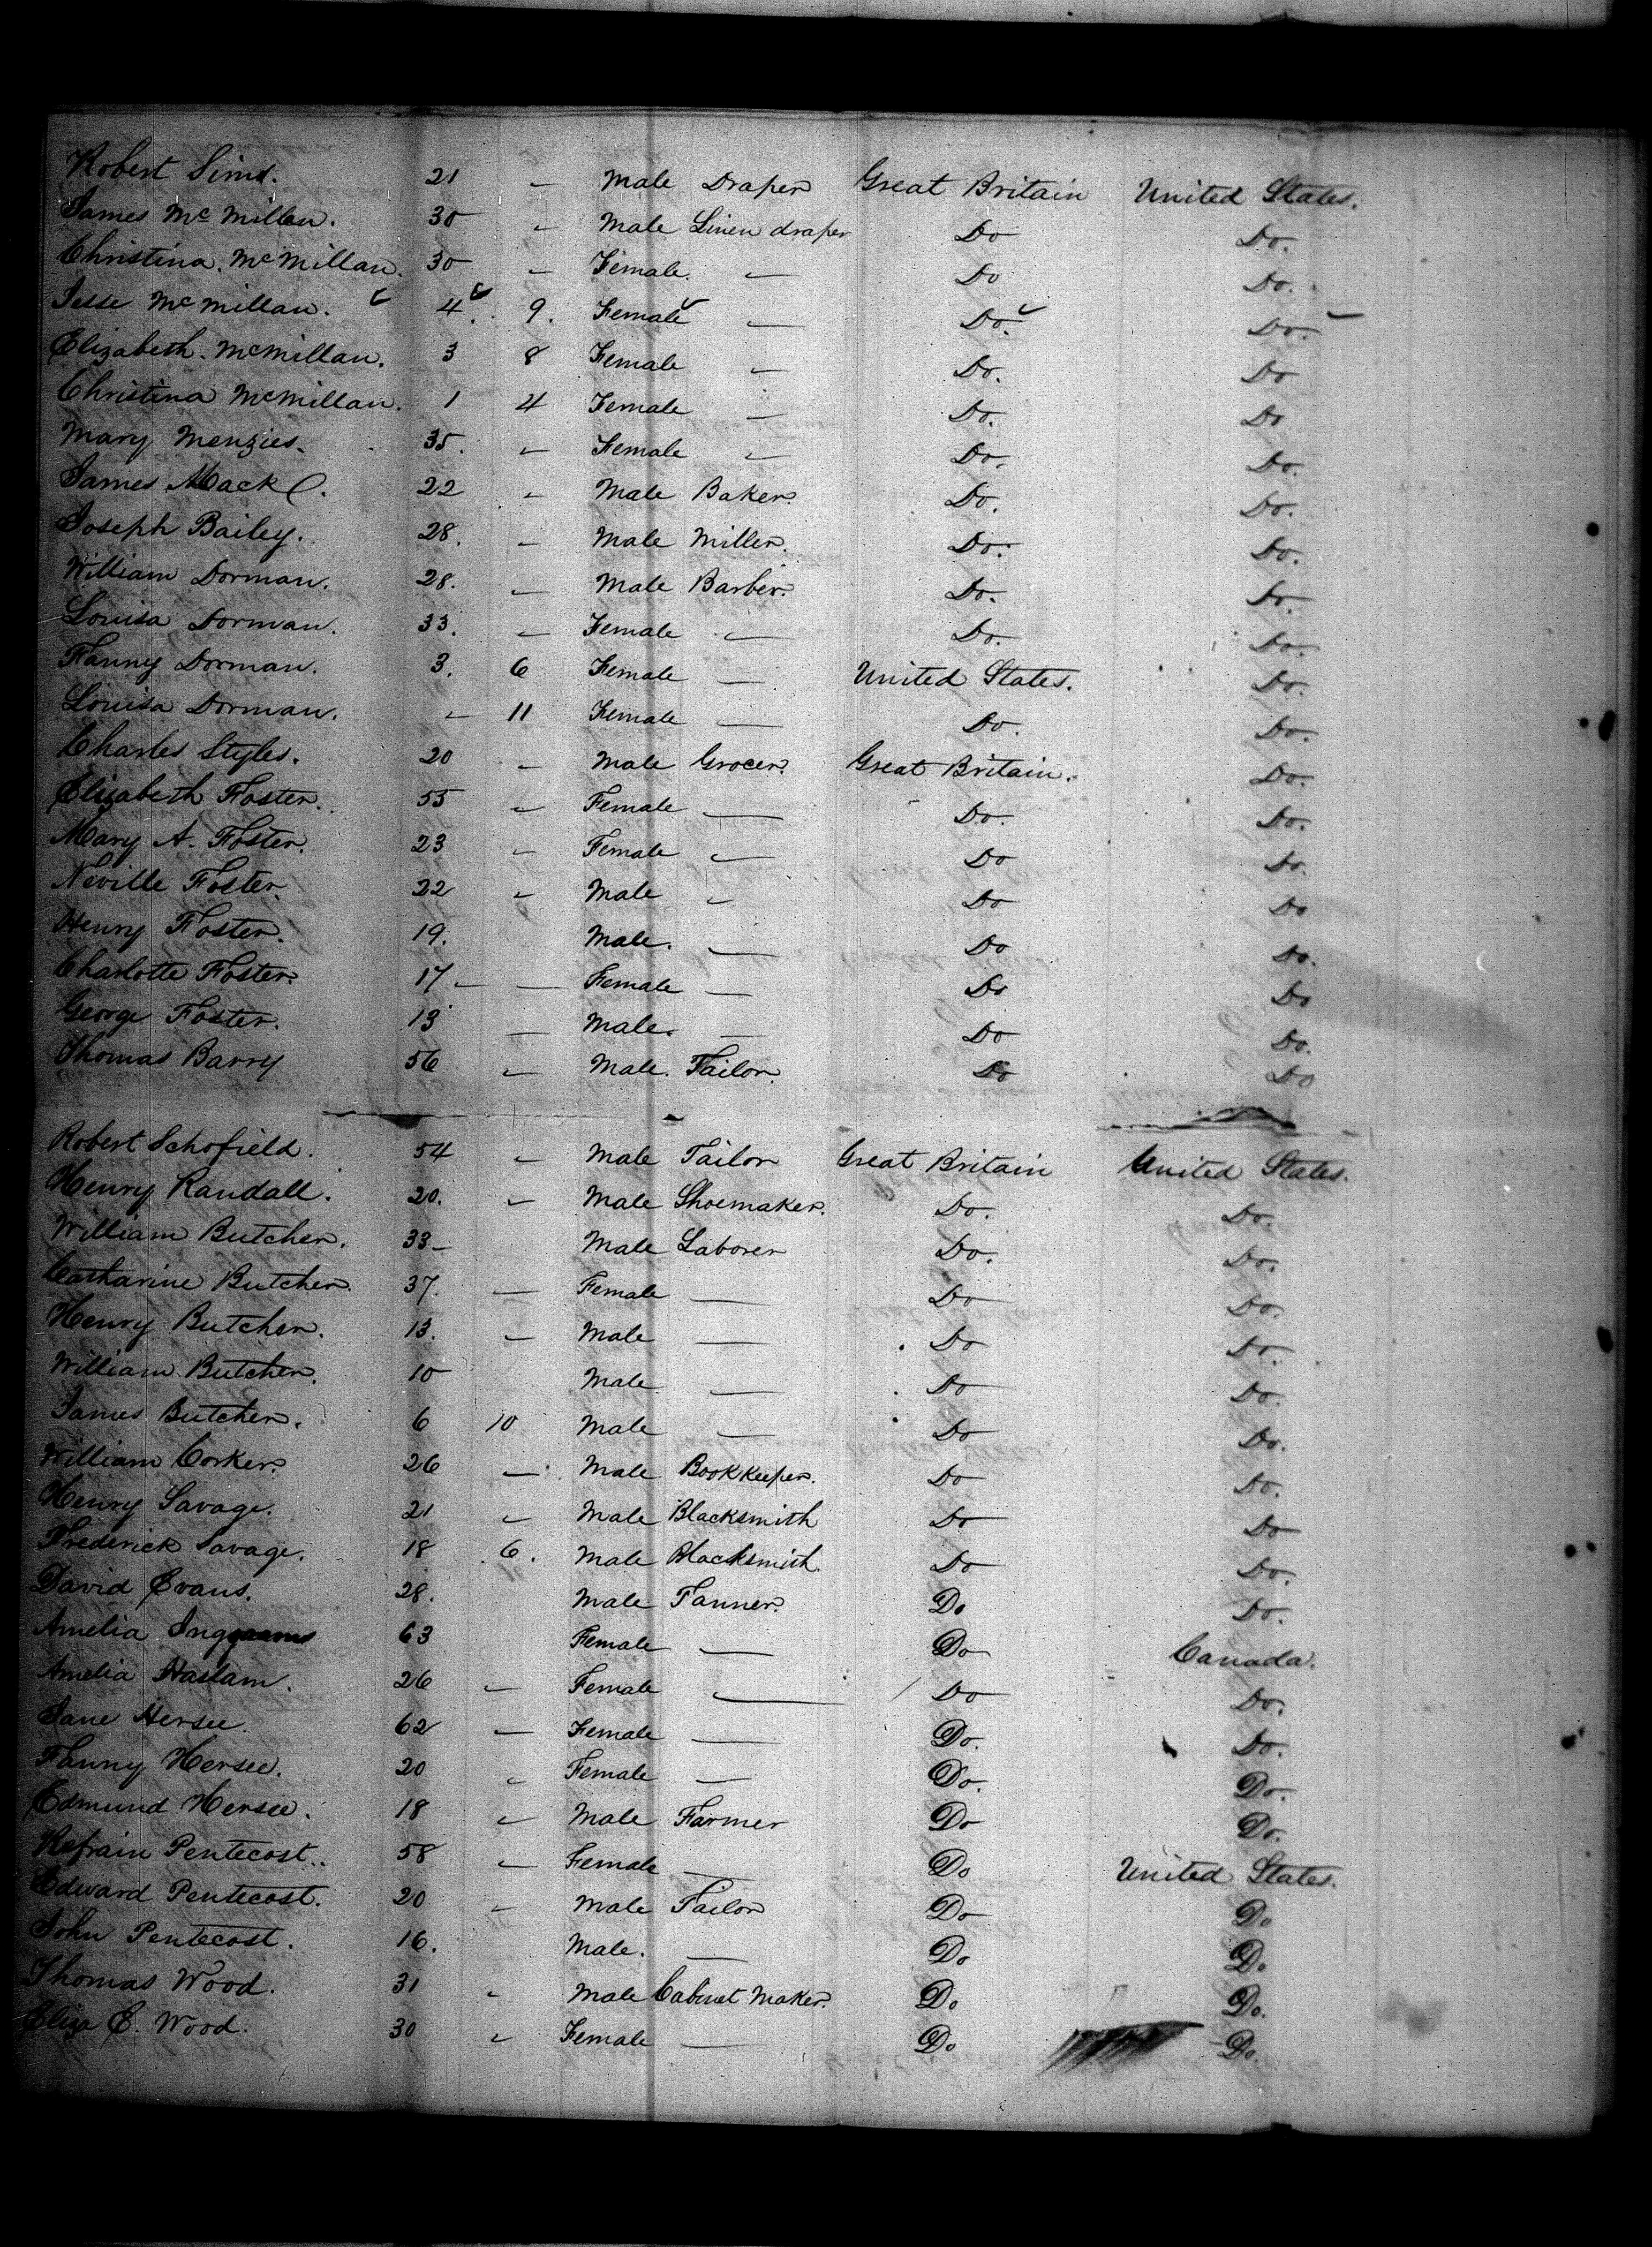 Robert Sims. 21 – Male Draper Great Britain United States.
James McMillan. 30 – Male Linen draper Do Do.
Christina. McMillan. 30 – Female. – Do Do.
Jesse McMillan. 4. 9. Female – Do. Do.
Elizabeth. McMillan. 3 8 Female – Do. Do
Christina McMillan. 1 4 Female – Do. Do
Mary Menzies. 35. – Female – Do. Do.
James Mack. 22 – Male Baker. Do. Do.
Joseph Bailey. 28. – Male Miller. Do. Do.
William Dorman. 28. – Male Barber. Do. Do.
Louisa Dorman. 33. – Female – Do. Do.
Fanny Dorman. 3. 6 Female – United States. Do.
Louisa Dorman. – 11 Female – Do. Do.
Charles Styles. 20 – Male Grocer. Great Britain. Do.
Elizabeth Foster. 55 – Female – Do. Do.
Mary A. Foster. 23 – Female – Do Do.
Neville Foster. 22 – Male – Do Do
Henry Foster. 19. Male. – Do Do.
Charlotte Foster. 17 – – Female – Do Do
George Foster. 13 – Male. – Do Do.
Thomas Barry 56 – Male. Tailor. Do Do
Robert Schofield. 54 – Male Tailor Great Britain United States.
Henry Randall. 20. – Male Shoemaker. Do. Do.
William Butcher. 33 – Male Laborer Do. Do.
Catharine Butcher. 37. – Female – Do Do.
Henry Butcher. 13. – Male – Do Do.
William Butcher. 10 Male – Do Do.
James Butcher. 6 10 Male – Do Do.
William Corker. 26 – Male Bookkeeper. Do Do.
Henry Savage. 21 – Male Blacksmith Do Do
Frederick Savage. 18 6. Male Blacksmith. Do Do.
David Evans. 28. Male Tanner. Do Do.
Amelia 63 Female – Do Canada.
Amelia Haslam. 26 – Female – Do Do.
Jane Hersee. 62 – Female – Do. Do.
Fanny Hersee. 20 – Female – Do. Do.
Edmund Hersee. 18 – Male Farmer Do Do.
Pentecost. 58 – Female – Do United States.
Edward Pentecost. 20 – Male Tailor Do Do
John Pentecost. 16. Male. – Do Do.
Thomas Wood. 31 – Male Cabinet Maker. Do Do.
Eliza E. Wood. 30 – Female – Do Do.